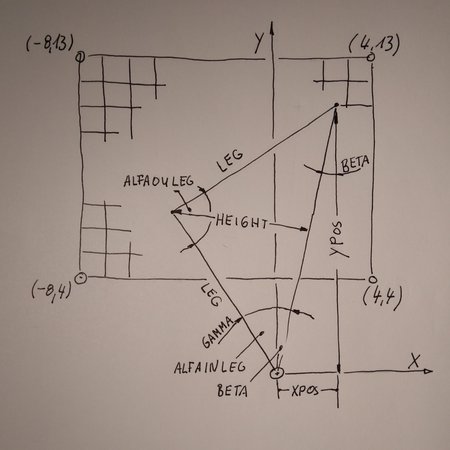 (-8,13)
Y
(4,13)
LEG
BETA
ALFAOULEG
HEIGHT
YPOS
(-8,4)
LEG
(4,4)
GAMMA
ALFAINLEG
X
BETA
XPOS